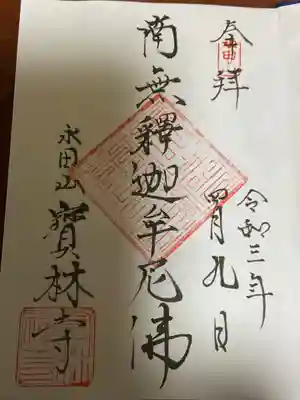 奉拝
令和三年
四月九日
南無釋迦牟尼佛
永田山
寳林寺